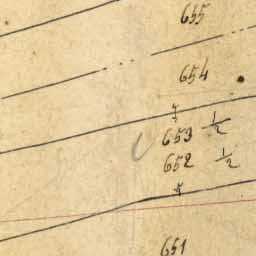 655
654
653 1/2
652 1/2
651